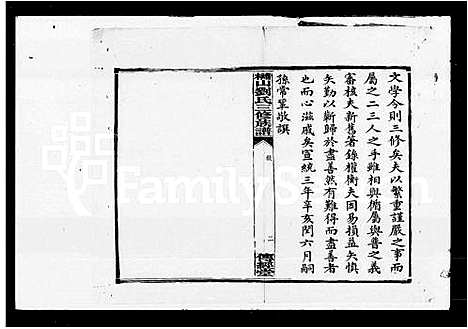 文學今則三修矣夫以繁重謹嚴之事而
屬之二三人之手難相與循屬與普之義
審核夫新舊著錄權衡夫因易損益矣慎
矣勤以斬歸於盡善然有難得而盡善者
也而心滋戚矣宣統三年辛亥閏六月嗣
孫常 敬譔
楠山劉氏三修族譜
敘
二
傳經堂
FamilySearch